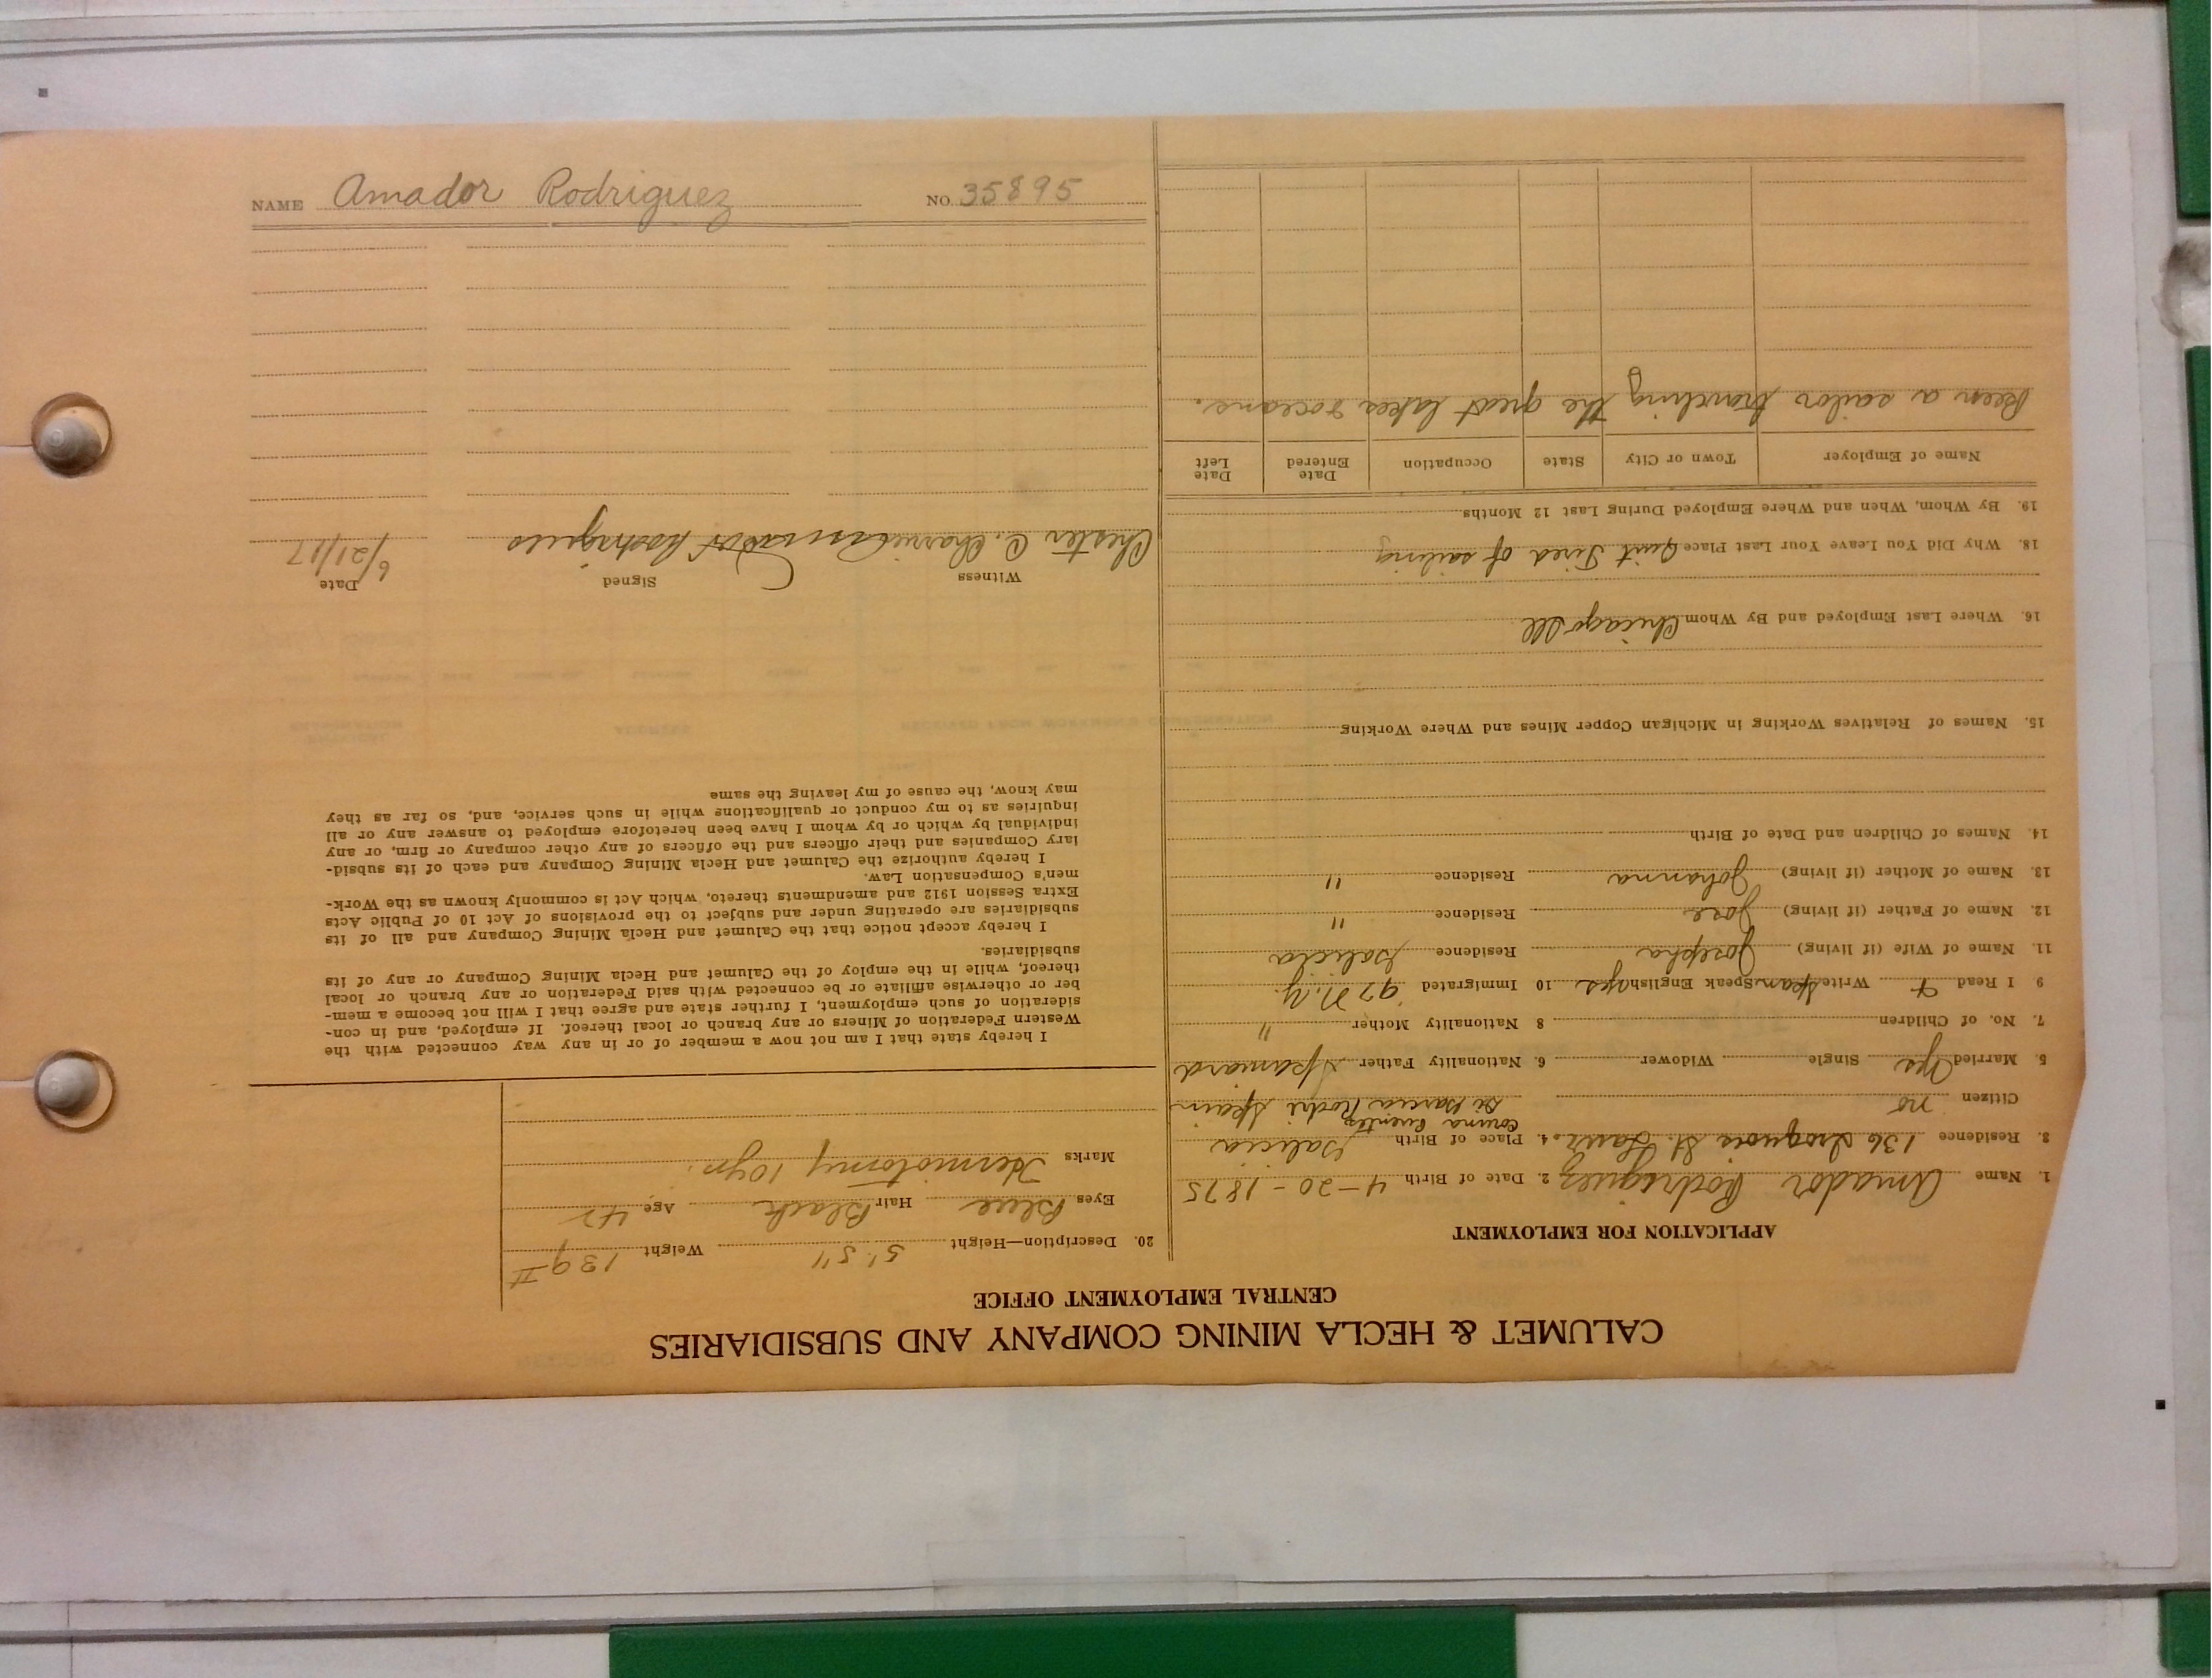 CALUMET & HECLA MINING COMPANY AND SUBSIDIARIES
CENTRAL EMPLOYMENT OFFICE
APPLICATION FOR EMPLOYMENT
1. Name Amador Rodriguez 2. Date of Birth 4-20-1875
3. Residence 136 Iroquois St. Laur. 4. Place of Birth Galicia
Coruna
Citizen no Spain
5. Married yes Single Widower 6. Nationality Father Spaniard
7. No. of Children 8 Nationality Mother "
9 I Read + Write Span Speak English yes 10 Immigrated '97 N.Y.
11. Name of Wife (if living) Josepha Residence Galicia
12. Name of Father (if living) Jose Residence "
13. Name of Mother (if living) Johanna Residence "
14. Names of Children and Date of Birth
15. Names of Relatives Working in Michigan Copper Mines and Where Working
16. Where Last Employed and By Whom Chicago Ill
18. Why Did You Leave Your Last Place Quit Tired of sailing
19. By Whom, When and Where Employed During Last 12 Months
Name of Employer Town or City State Occupation Date Entered Date Left
Been a sailor traveling the great lakes & oceans.
20. Description—Height 5' 5" Weight 139
Eyes Blue Hair Black Age 42
Marks Herniotomy 10 yrs.
I hereby state that I am not now a member of or in any way connected with the
Western Federation of Miners or any branch or local thereof. If employed, and in con-
sideration of such employment, I further state and agree that I will not become a mem-
ber or otherwise affiliate or be connected with said Federation or any branch or local
thereof, while in the employ of the Calumet and Hecla Mining Company or any of its
subsidiaries.
I hereby accept notice that the Calumet and Hecla Mining Company and all of its
subsidiaries are operating under and subject to the provisions of Act 10 of Public Acts
Extra Session 1912 and amendments thereto, which Act is commonly known as the Work-
men's Compensation Law.
I hereby authorize the Calumet and Hecla Mining Company and each of its subsid-
iary Companies and their officers and the officers of any other company or firm, or any
individual by which or by whom I have been heretofore employed to answer any or all
inquiries as to my conduct or qualifications while in such service, and, so far as they
may know, the cause of my leaving the same
Witness Signed Date
Chester C. Amador Rodrigues 6/21/17
NAME Amador Rodriguez NO. 35895